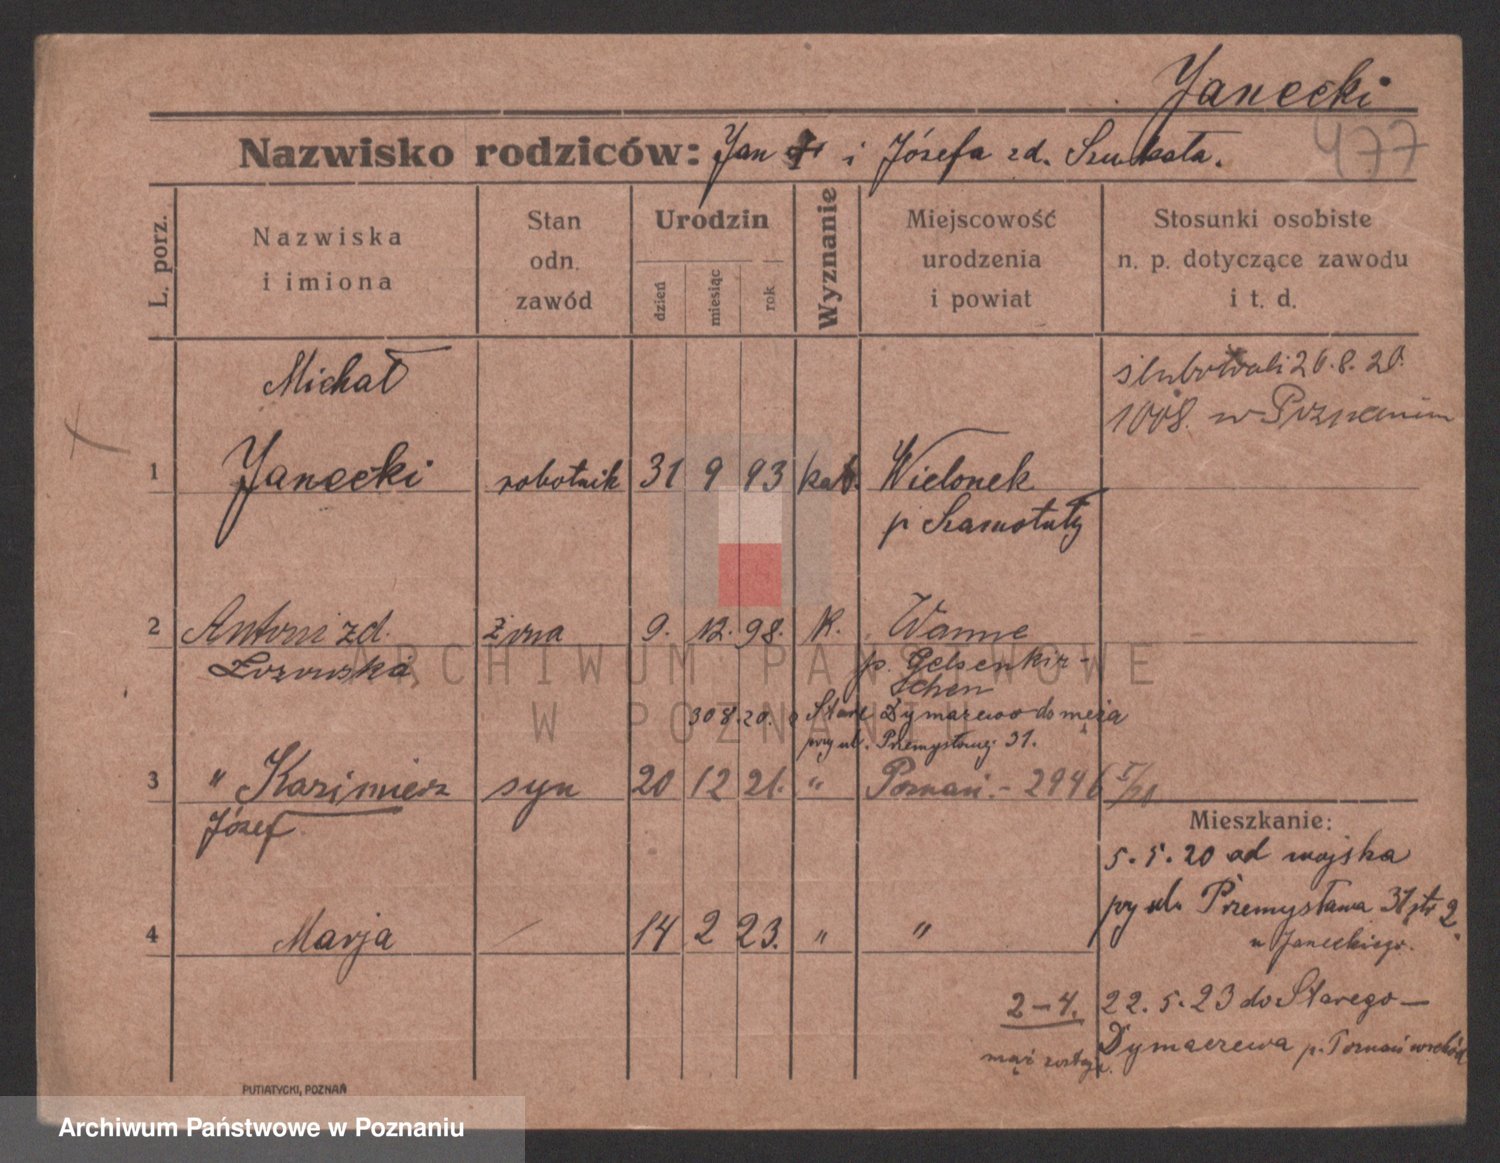 Janecki
477
Nazwisko rodziców: Jan i Józefa zd. Szukała.
L. porz.
Nazwiska
i imiona
Stan
odn.
zawód
Urodzin
dzień
miesiąc
rok
Wyznanie
Miejscowość
urodzenia
i powiat
Stosunki osobiste
n. p. dotyczące zawodu
i t. d.
Michał
ślubowali 26.8.20.
1008. w Poznaniu
1 Janecki robotnik 31 9 93 kat. Wielonek
p Szamotuły
2 Antoni zd. żona 9. 12. 98. k. Wanne
p. Gelsenkir-
chen
30 8. 20. Stare Dymazewo do męża
przy ul. Przemysława 31.
3 " Kazimierz syn 20 12 21. " Poznań. - 2946 I/21
Józef
Mieszkanie:
5. 5. 20 od wojska
przy ul. Przemysława 31 ptr 2.
u Janeckiego.
4 Marja 14 2 23. " "
2-4. 22. 5. 23 do Starego-
mąż Dymaczewa p. Poznań wschód
PUTIATYCKI, POZNAŃ
ARCHIWUM PAŃSTWOWE
W POZNANIU
Archiwum Państwowe w Poznaniu